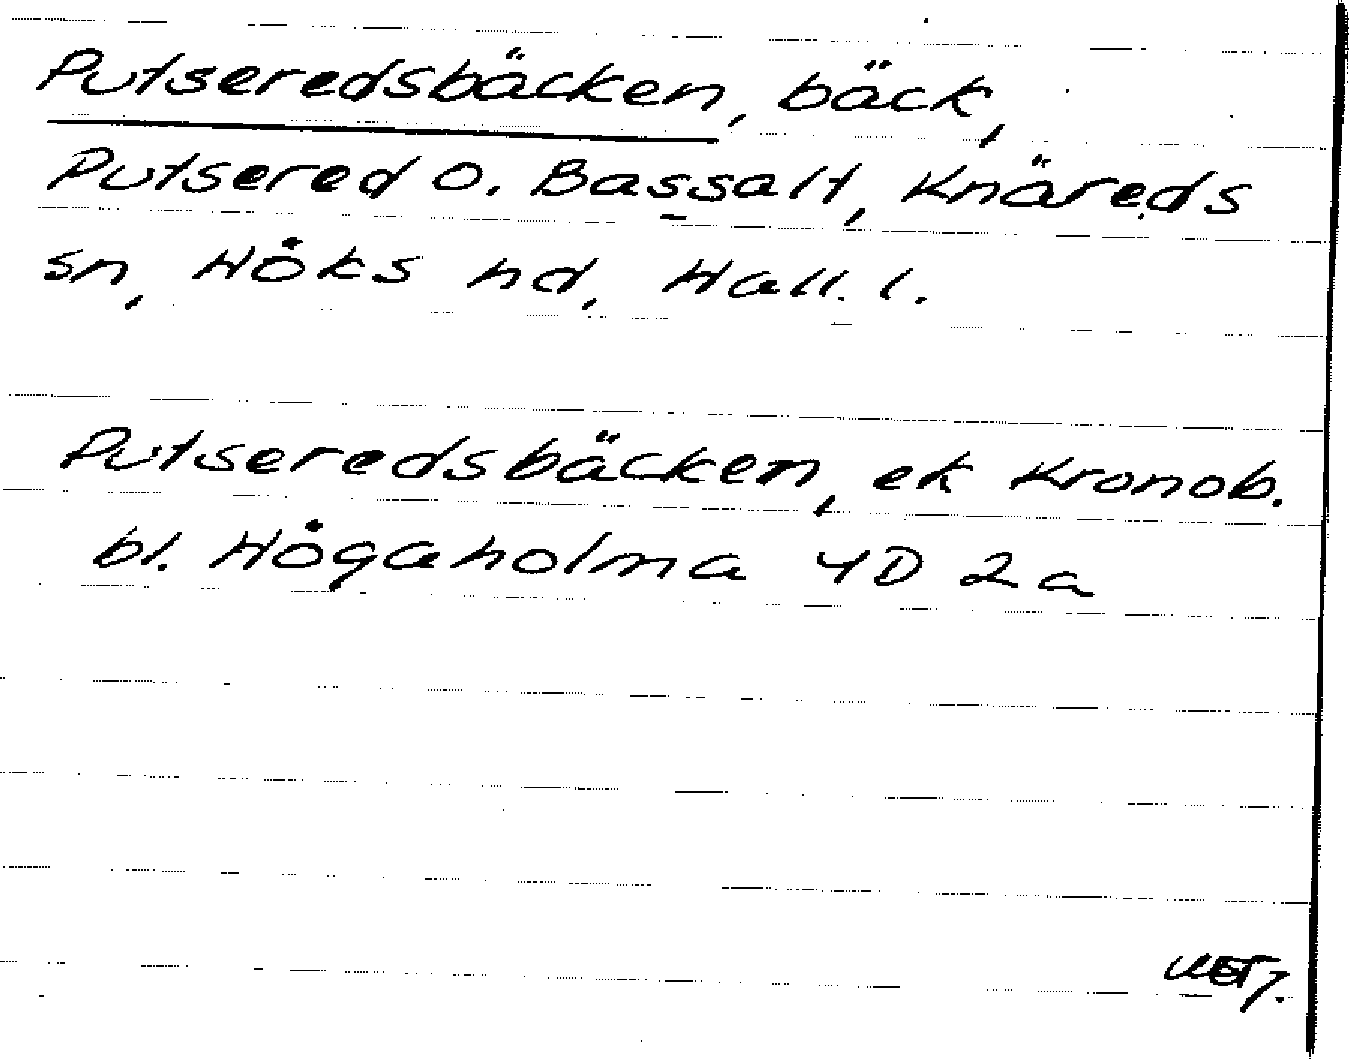 Putseredsbäcken, bäck,
Putsered o. Bassalt, Knäreds
sn, Höks hd, Hall. l.
Putseredsbäcken, ek Kronob.
bl. Högaholma 4D 2a